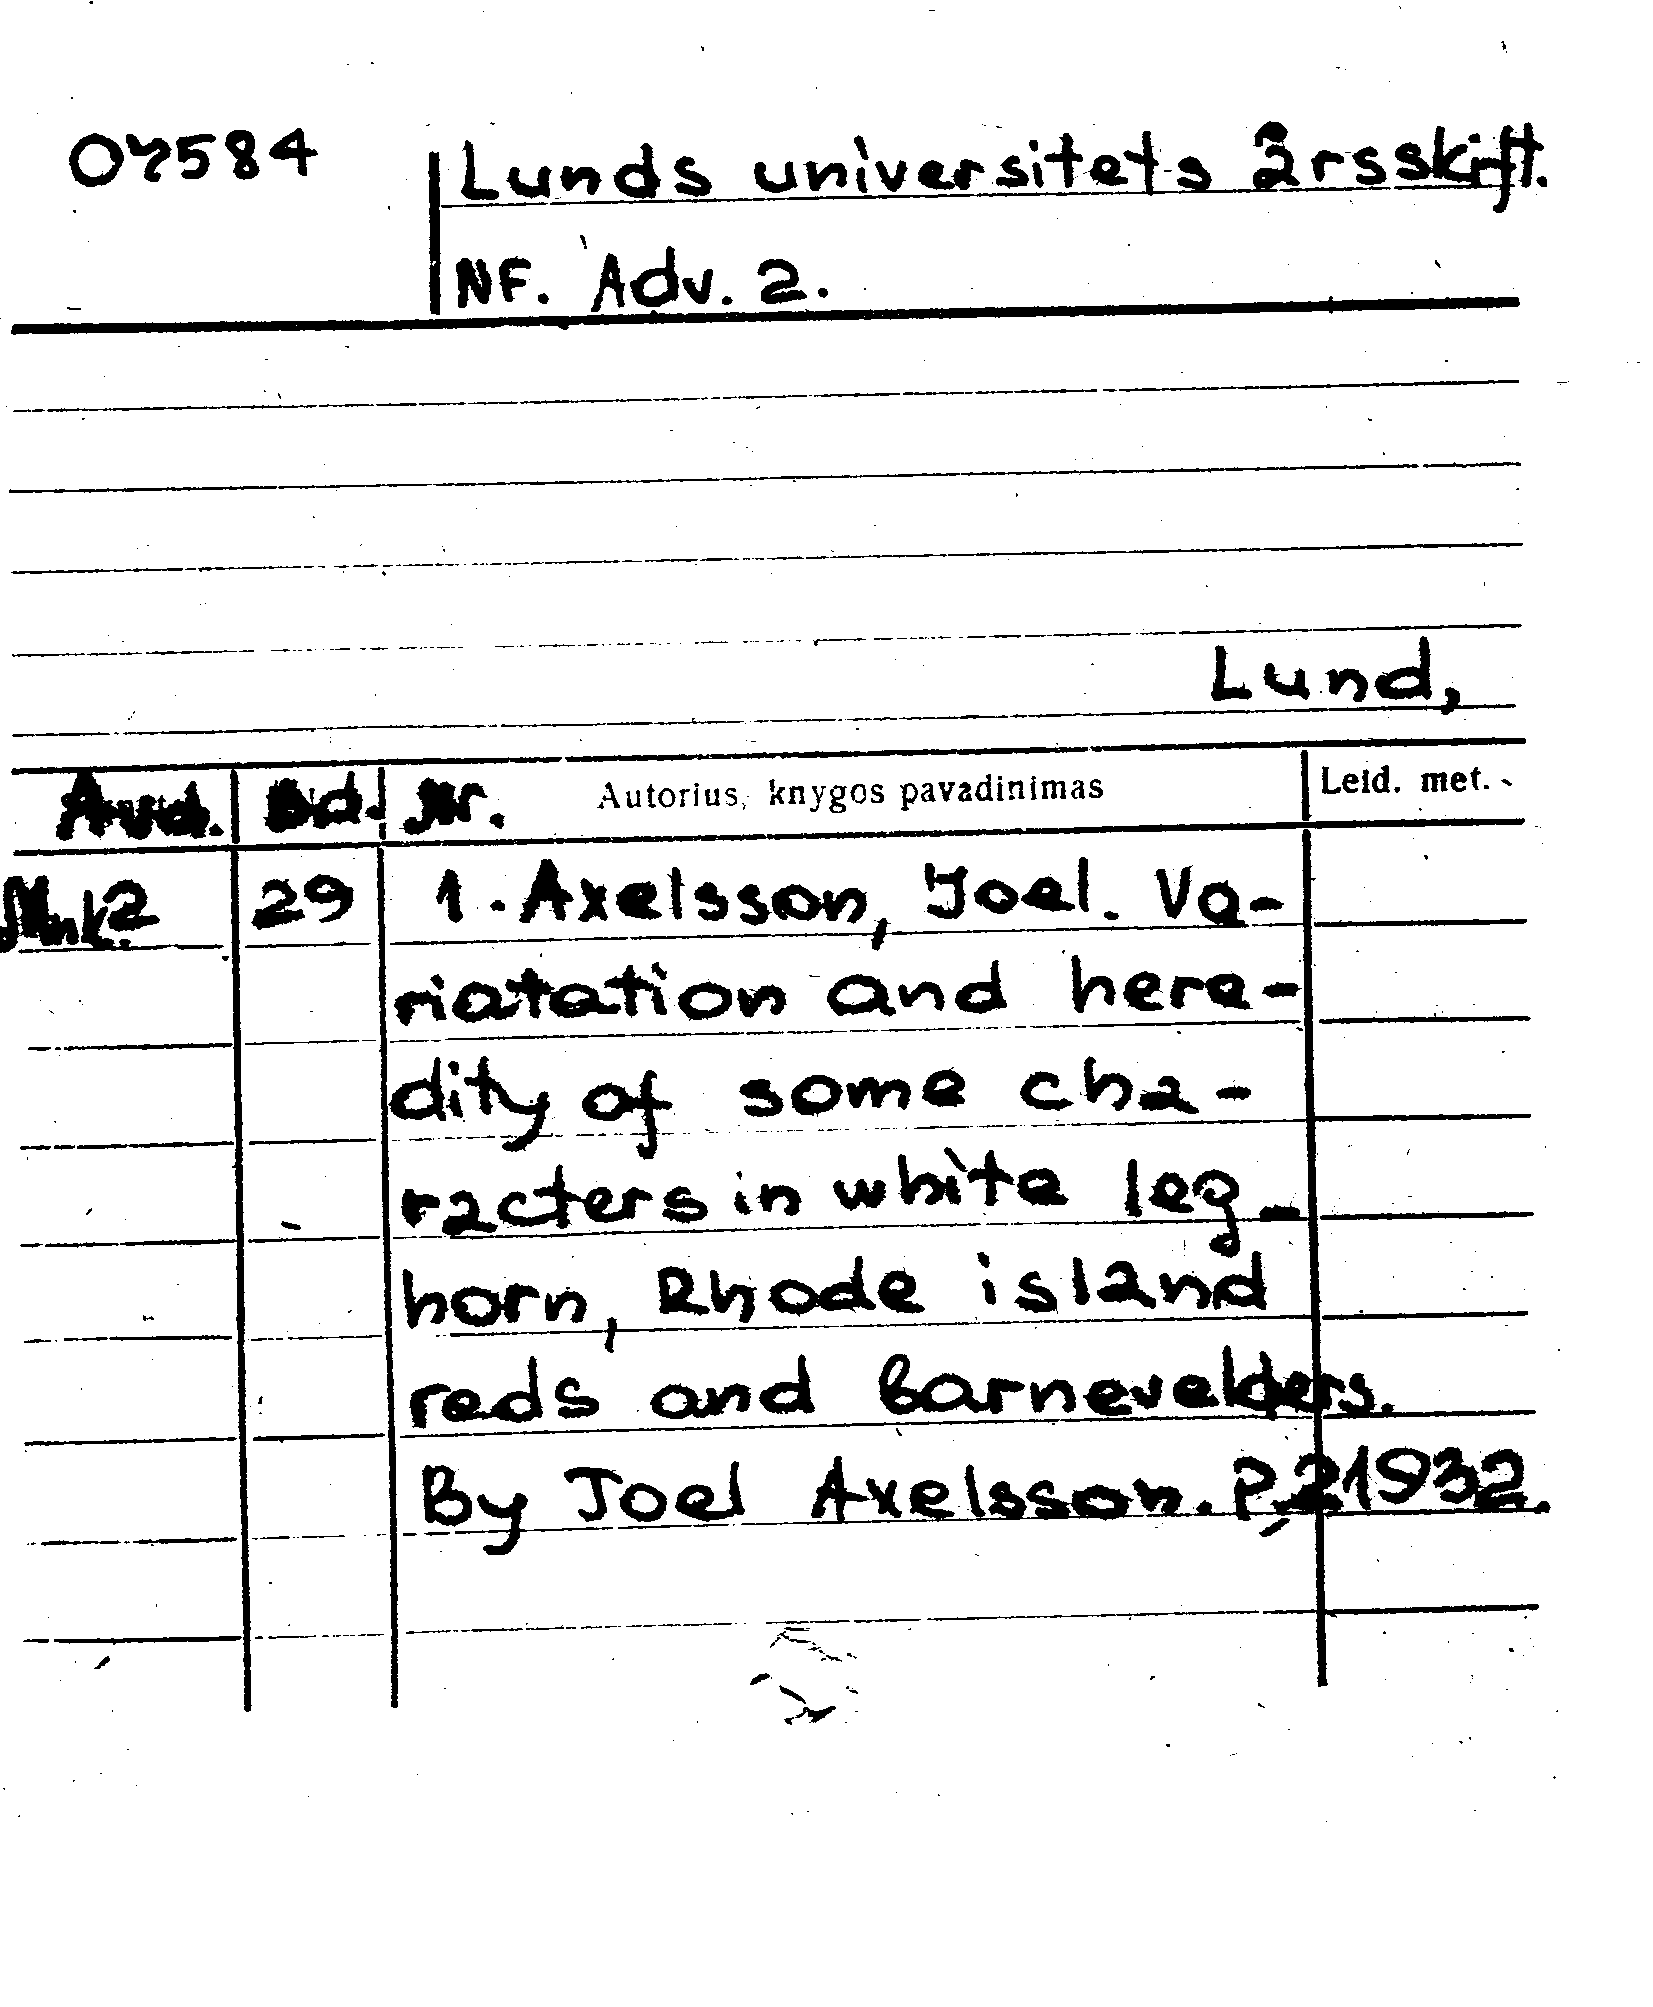 07584
Lunds universitets årsskrift.
NF. Adv. 2.
Lund,
Avd. Bd. Nr. Autorius, knygos pavadinimas Leid. met.
2 29 1. Axelsson, Joel. Va-
riatation and here-
dity of some cha-
racters in white leg-
horn, Rhode island
reds and Barnevelders.
By Joel Axelsson. P. 2 1932.